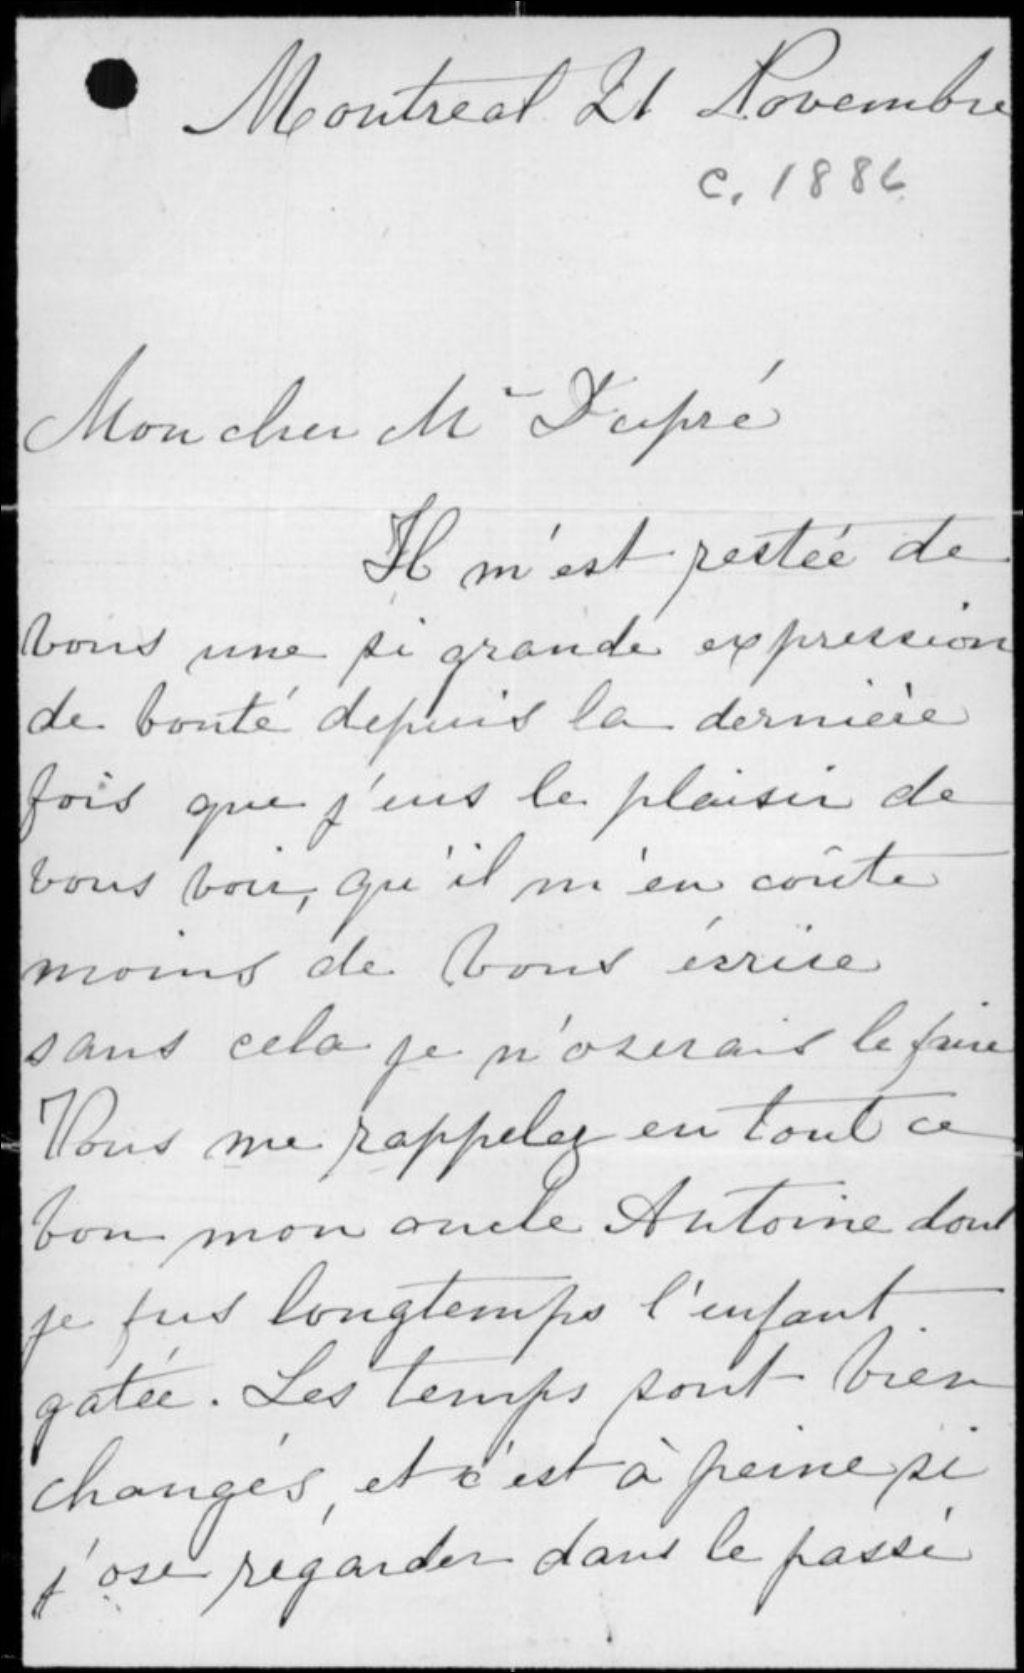 Montreal 21 Novembre
c. 1886
Mon cher Mr Dupré
Il m'est restée de
vous une si grande expression
de bonté depuis la dernière
fois que j'eus le plaisir de
vous voir, qu'il m'en coûte
moins de vous écrire
sans cela je n'oserais le faire
Vous me rappelez en tout ce
bon mon oncle Antoine dont
je fus longtemps l'enfant
gatée. Les temps sont bien
changés, et c'est à peine si
j'ose régarder dans le passé